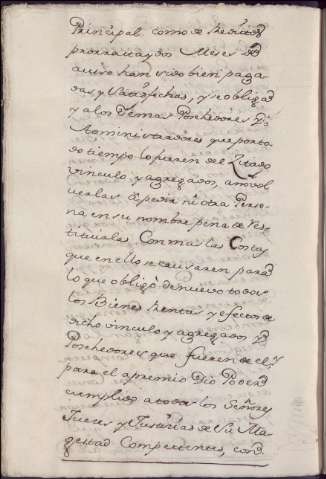 Principal como de Reditos
prorrata y dos Meses de
aviso han sido bien paga
das, y satisfechas, y se obliga
y a los demas Poshedores y
Administradores que por to
do tiempo lo fueren del Citado
vinculo y agregados, a no vol
verlas a pedir ni otra Perso
na en su nombre pena de Res
tituirlas Con mas las Costas
que en ello se causaren para
lo que obligó de nuevo todos
los Bienes Rentas y efectos de
dicho vinculo y agregados y
Poshedores que fueren de el, y
para el apremio Dio Poder
cumplido a todos los Señores
Jueces y Justicias de Su Ma
gestad Competentes, con